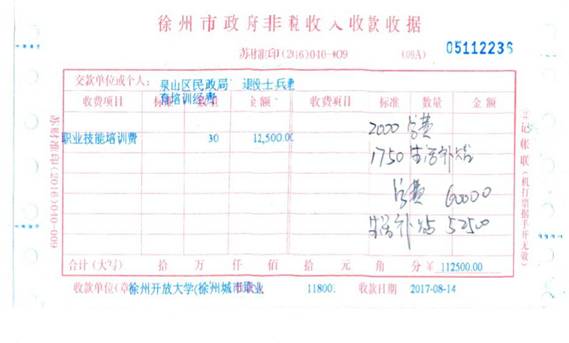 徐州市政府非税收入收款收据
苏财准印(2016)040-#09 (09A) 05112236
交款单位或个人: 泉山区民政局 退役士兵教
育培训经费
收费项目 标准 数量 金额 收费项目 标准 数量 金额
职业技能培训费 30 12,500.00
2000 学费
1750 生活补贴
学费 60000
生活补贴 52500
合计(大写) 拾 万 仟 佰 拾 元 角 分 ¥ 112500.00
收款单位(章 徐州开放大学(徐州城市职业 11800. 收款日期 2017-08-14
苏财准印(2016)040-009
记帐联(机打票据手开无效)